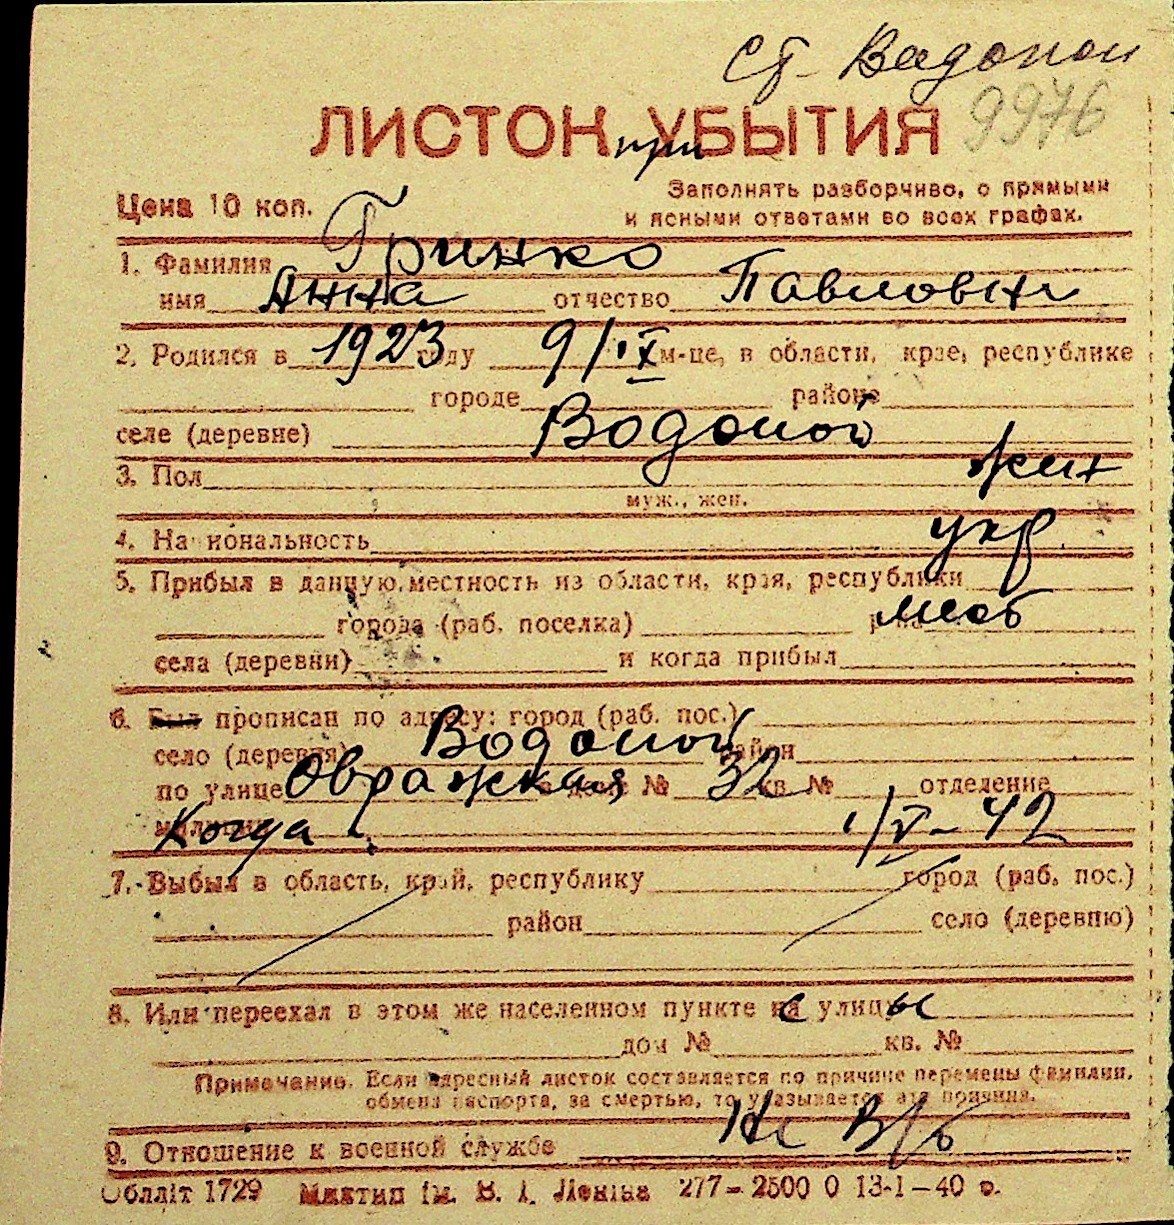 ст. Вадопой
ЛИСТОК при УБЫТИЯ 9976
Цена 10 коп. Заполнять разборчиво, с прямыми
и ясными ответами во всех графах.
1. Фамилия Гринко
имя Анна отчество Павловна
2. Родился в 1923 году 9/IX м-це, в области, крае, республике
городе районе
селе (деревне) Водопой
3. Пол жен
муж., жен.
4. Национальность укр
5. Прибыл в данную местность из области, края, республики
города (раб. поселка) р-на мест
села (деревни) и когда прибыл
6. Был прописан по адресу: город (раб. пос.)
село (деревня) Водопой район
по улице Овражная в доме № 32 кв. № отделение
милиции Когда 1/V-42
7. Выбыл в область, край, республику город (раб. пос.)
район село (деревню)
8. Или переехал в этом же населенном пункте с улицы
дом № кв. №
Примечание. Если адресный листок составляется по причине перемены фамилии,
обмена паспорта, за смертью, то указывается эта причина.
9. Отношение к военной службе Не в/об
Обллiт 1729 Миктип iм. В. I. Ленiна 277—2500 0 13-1—40 р.